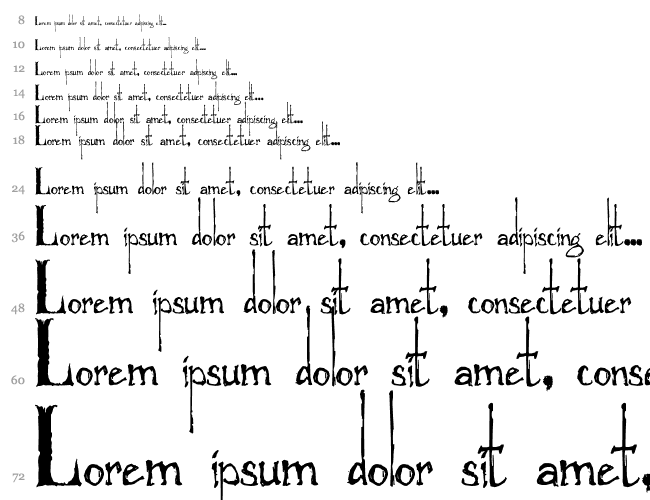 8 Lorem ipsum dolor sit amet, consectetuer adipiscing elit...
10 Lorem ipsum dolor sit amet, consectetuer adipiscing elit...
12 Lorem ipsum dolor sit amet, consectetuer adipiscing elit...
14 Lorem ipsum dolor sit amet, consectetuer adipiscing elit...
16 Lorem ipsum dolor sit amet, consectetuer adipiscing elit...
18 Lorem ipsum dolor sit amet, consectetuer adipiscing elit...
24 Lorem ipsum dolor sit amet, consectetuer adipiscing elit...
36 Lorem ipsum dolor sit amet, consectetuer adipiscing elit...
48 Lorem ipsum dolor sit amet, consectetuer
60 Lorem ipsum dolor sit amet, conse
72 Lorem ipsum dolor sit amet,